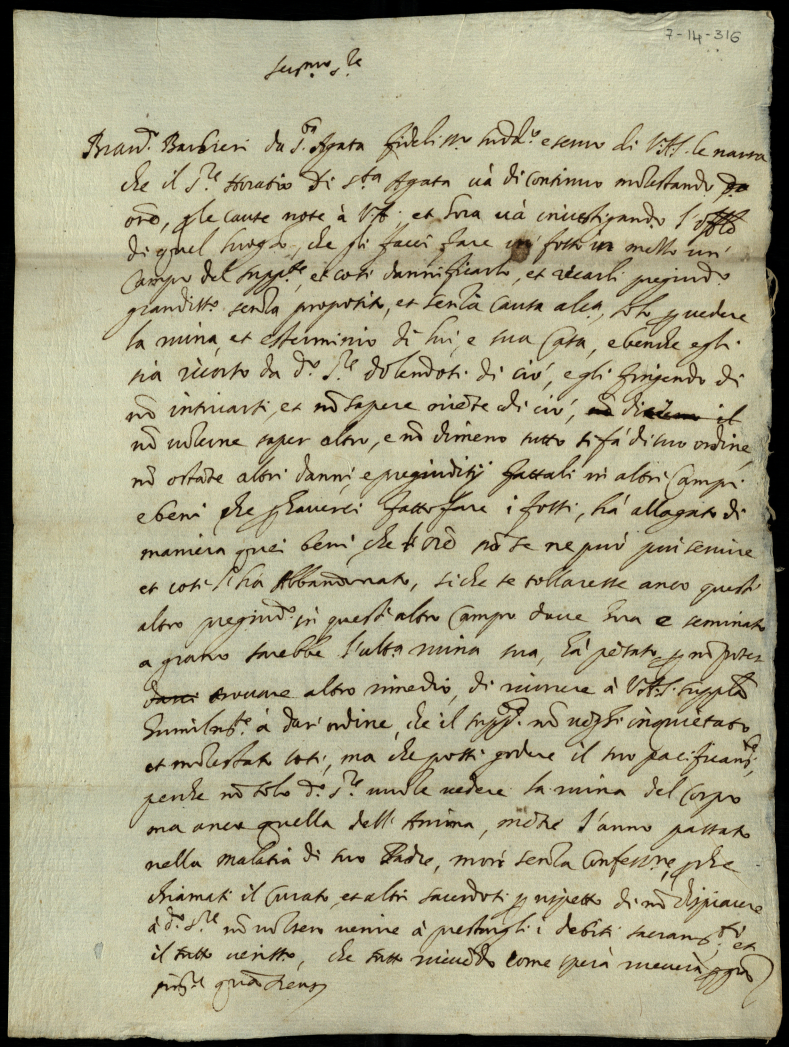 7-14-316
Ser.mo S.re
Brand.o Barbieri da S.ta Agata fidelis.mo sudd.o e servo di V.A.S. le narra
che il S.re Horatio di S.ta Agata và di continuo molestando
orõ, p le cause note à V.A. et hora và investigando l'offitio
di quel luogo, che gli facci fare fossi in mezzo un'
Campo del supp.te, et così dannificarlo, et recarli pregiud.o
grandiss.o senza proposito, et senza causa alca, solo p vedere
la ruina, et esterminio di lui, e sua Casa, e benche egli
sia ricorso da d.o S.re dolendosi di ciò, e gli fingendo di
nõ intricarsi, et nõ sapere niete di ciò,
nõ volerne saper altro, e nõ dimeno tutto si fà di suo ordine
nõ ostate altri danni, e pregiuditij fattali in altri Campi
e beni che p haverci fatto fare i fossi, hà allagato di
maniera quei beni, che l'orõ nõ se ne può più servire
et così l'ha Abbandonato, si che se tollaresse anco questi
altro pregiud.o in questi altro Campo dove hora e seminato
a grano sarebbe l'ulta ruina sua, hà pesato p nõ poter
trovare altro rimedio, di ricorrere à V.A.S. suppla
humilm.te à dar' ordine, che il supp.te nõ venghi inquietato
et molestato così, ma che possi godere il suo pacificam.te,
perche nõ solo d.o S.re vuole vedere la ruina del Corpo
ma anco quella dell'Anima, metre l'anno passato
nella malatia di suo Padre, morì senza Confessore, p che
chiamati il Curato, et altri sacerdoti p rispetto di nõ dispiacere
à d.o S.re nõ volsero venire à prestargli i debiti sacram.ti, et
il tutto veriss.o, che tutto ricevedo come spera riceverà p gra